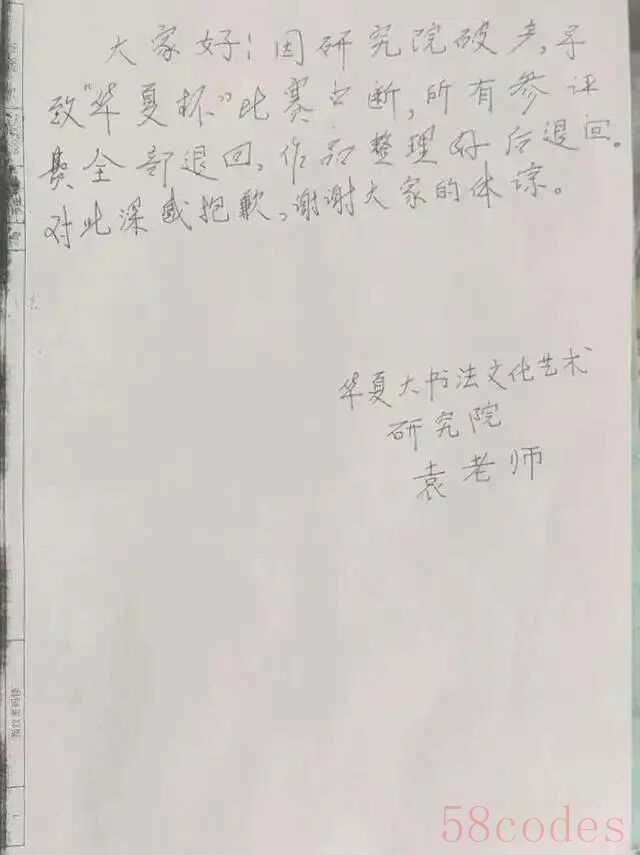 大家好！因研究院破产，导
致“华夏杯”比赛中断，所有参评
费全部退回，作品整理好后退回。
对此深感抱歉，谢谢大家的体谅。
华夏大书法文化艺术
研究院
袁老师
58codes